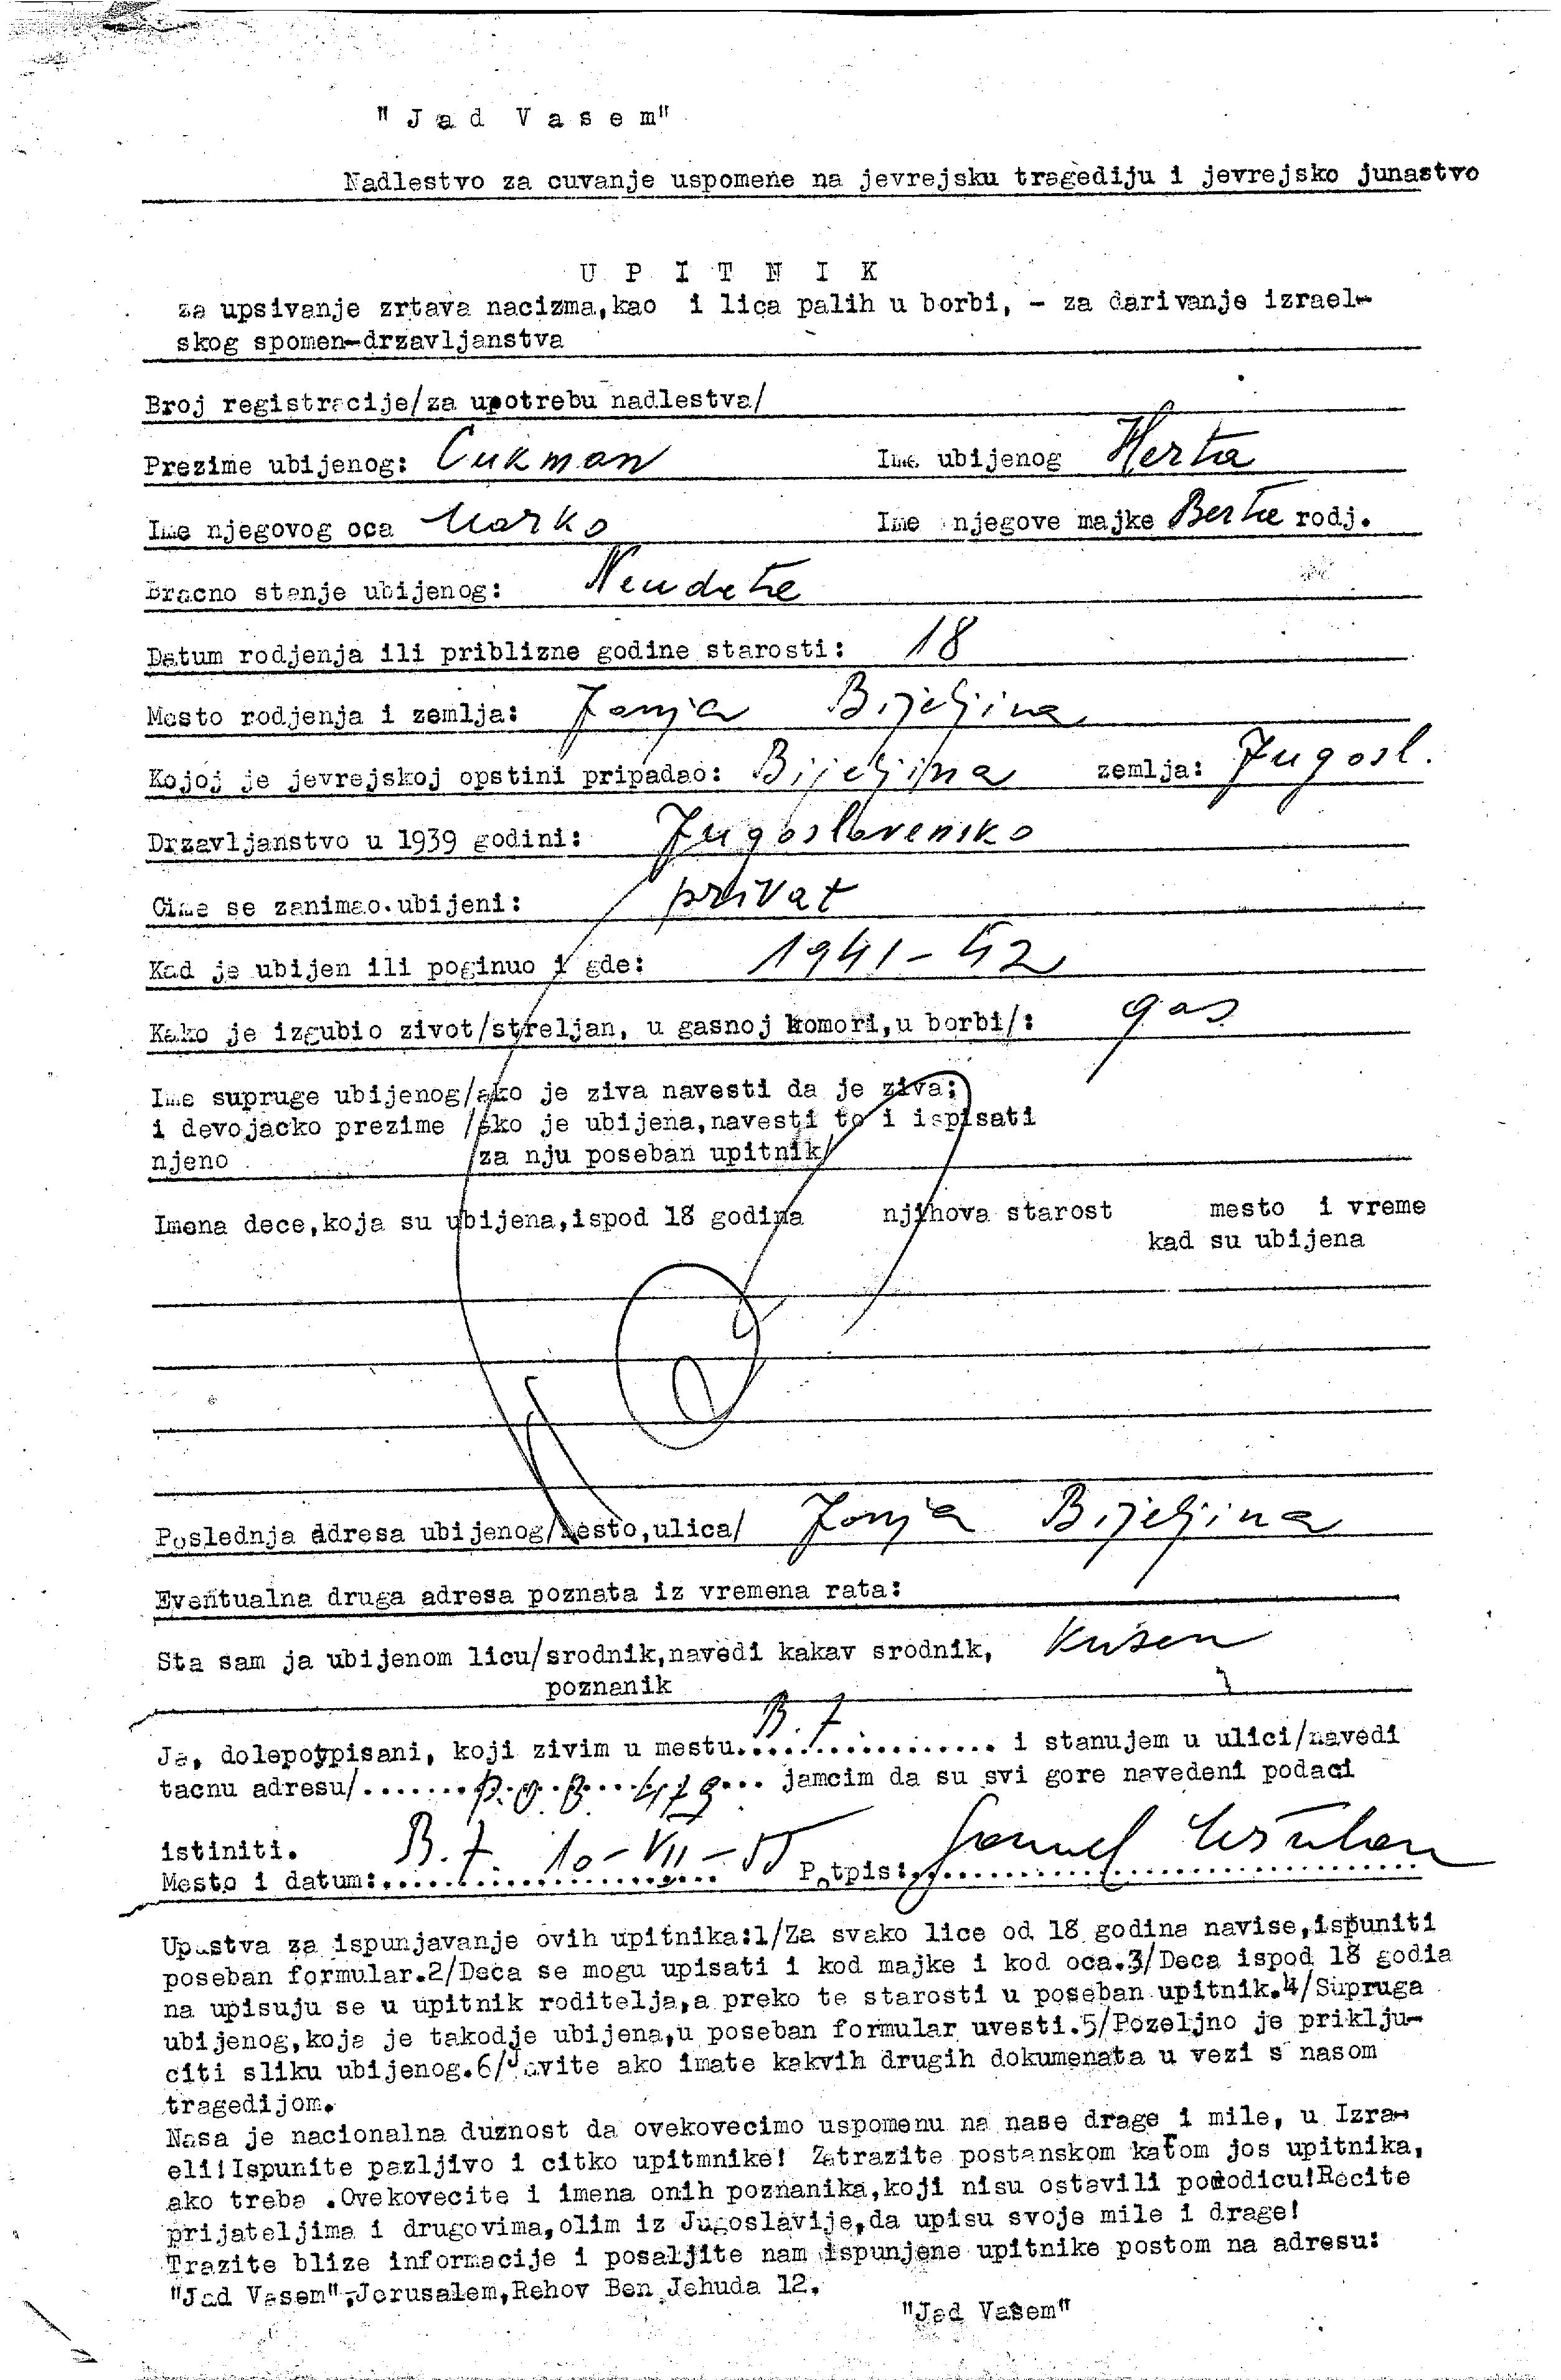 "Jad Vasem"
Nadlestvo za cuvanje uspomene na jevrejsku tragediju i jevrejsko junastvo
UPITNIK
za upsivanje zrtava nacizma,kao i lica palih u borbi, - za darivanje izrael-
skog spomen-drzavljanstva
Broj registracije/za upotrebu nadlestva/
Prezime ubijenog: Cukman Ime ubijenog Herta
Ime njegovog oca Marko Ime njegove majke Berta rodj.
Bracno stanje ubijenog: Neudata
Datum rodjenja ili priblizne godine starosti: 18
Mesto rodjenja i zemlja: Janja Bijeljina
Kojoj je jevrejskoj opstini pripadao: Bijeljina zemlja: Jugosl.
Drzavljanstvo u 1939 godini: Jugoslavensko
Cime se zanimao.ubijeni: privat
Kad je ubijen ili poginuo i gde: 1941-42
Kako je izgubio zivot/streljan, u gasnoj komori,u borbi/: gas
Ime supruge ubijenog/ako je ziva navesti da je ziva;
i devojacko prezime /ako je ubijena,navesti to i ispisati
njeno /za nju poseban upitnik/
Imena dece,koja su ubijena,ispod 18 godina njihova starost mesto i vreme
kad su ubijena
Poslednja adresa ubijenog/mesto,ulica/ Janja Bijeljina
Eventualna druga adresa poznata iz vremena rata:
Sta sam ja ubijenom licu/srodnik,navedi kakav srodnik,
poznanik
Ja, dolepotpisani, koji zivim u mestu.................... i stanujem u ulici/navedi
tacnu adresu/....... p.o.b. 479... jamcim da su svi gore navedeni podaci
istiniti.
Mesto i datum: 10-VII-55 Potpis:
Upustva za ispunjavanje ovih upitnika:1/Za svako lice od 18 godina navise,ispuniti
poseban formular.2/Deca se mogu upisati i kod majke i kod oca.3/Deca ispod 18 godia
na upisuju se u upitnik roditelja,a preko te starosti u poseban upitnik.4/Supruga
ubijenog,koja je takodje ubijena,u poseban formular uvesti.5/Pozeljno je priklju-
citi sliku ubijenog.6/Javite ako imate kakvih drugih dokumenata u vezi s nasom
tragedijom.
Nasa je nacionalna duznost da ovekovecimo uspomenu na nase drage i mile, u Izra-
eli!Ispunite pazljivo i citko upitmnike! Zatrazite postanskom katom jos upitnika,
ako treba .Ovekovecite i imena onih poznanika,koji nisu ostavili porodicu!Recite
prijateljima i drugovima,olim iz Jugoslavije,da upisu svoje mile i drage!
Trazite blize informacije i posaljite nam ispunjene upitnike postom na adresu:
"Jad Vasem",Jerusalem,Rehov Ben Jehuda 12.
"Jad Vasem"